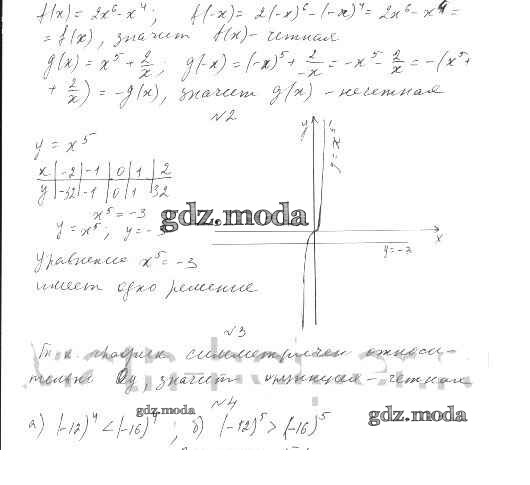 f(x) = 2x⁶-x⁴; f(-x) = 2(-x)⁶-(-x)⁴ = 2x⁶-x⁴ =
= f(x), значит f(x) - четная
g(x) = x⁵ + 2/x; g(-x) = (-x)⁵ + 2/-x = -x⁵ - 2/x = -(x⁵+
+ 2/x) = -g(x), значит g(x) - нечетная
№2
y = x⁵
x | -2 | -1 | 0 | 1 | 2
y | -32 | -1 | 0 | 1 | 32
x⁵ = -3
y = x⁵; y = -3
Уравнение x⁵ = -3
имеет одно решение
y
y = x⁵
x
y = -3
gdz.moda
№3
Т. к. график симметричен относи-
тельно Oy, значит функция - четная
№4
а) (-12)⁴ < (-16)⁴; б) (-12)⁵ > (-16)⁵
gdz.moda
gdz.moda